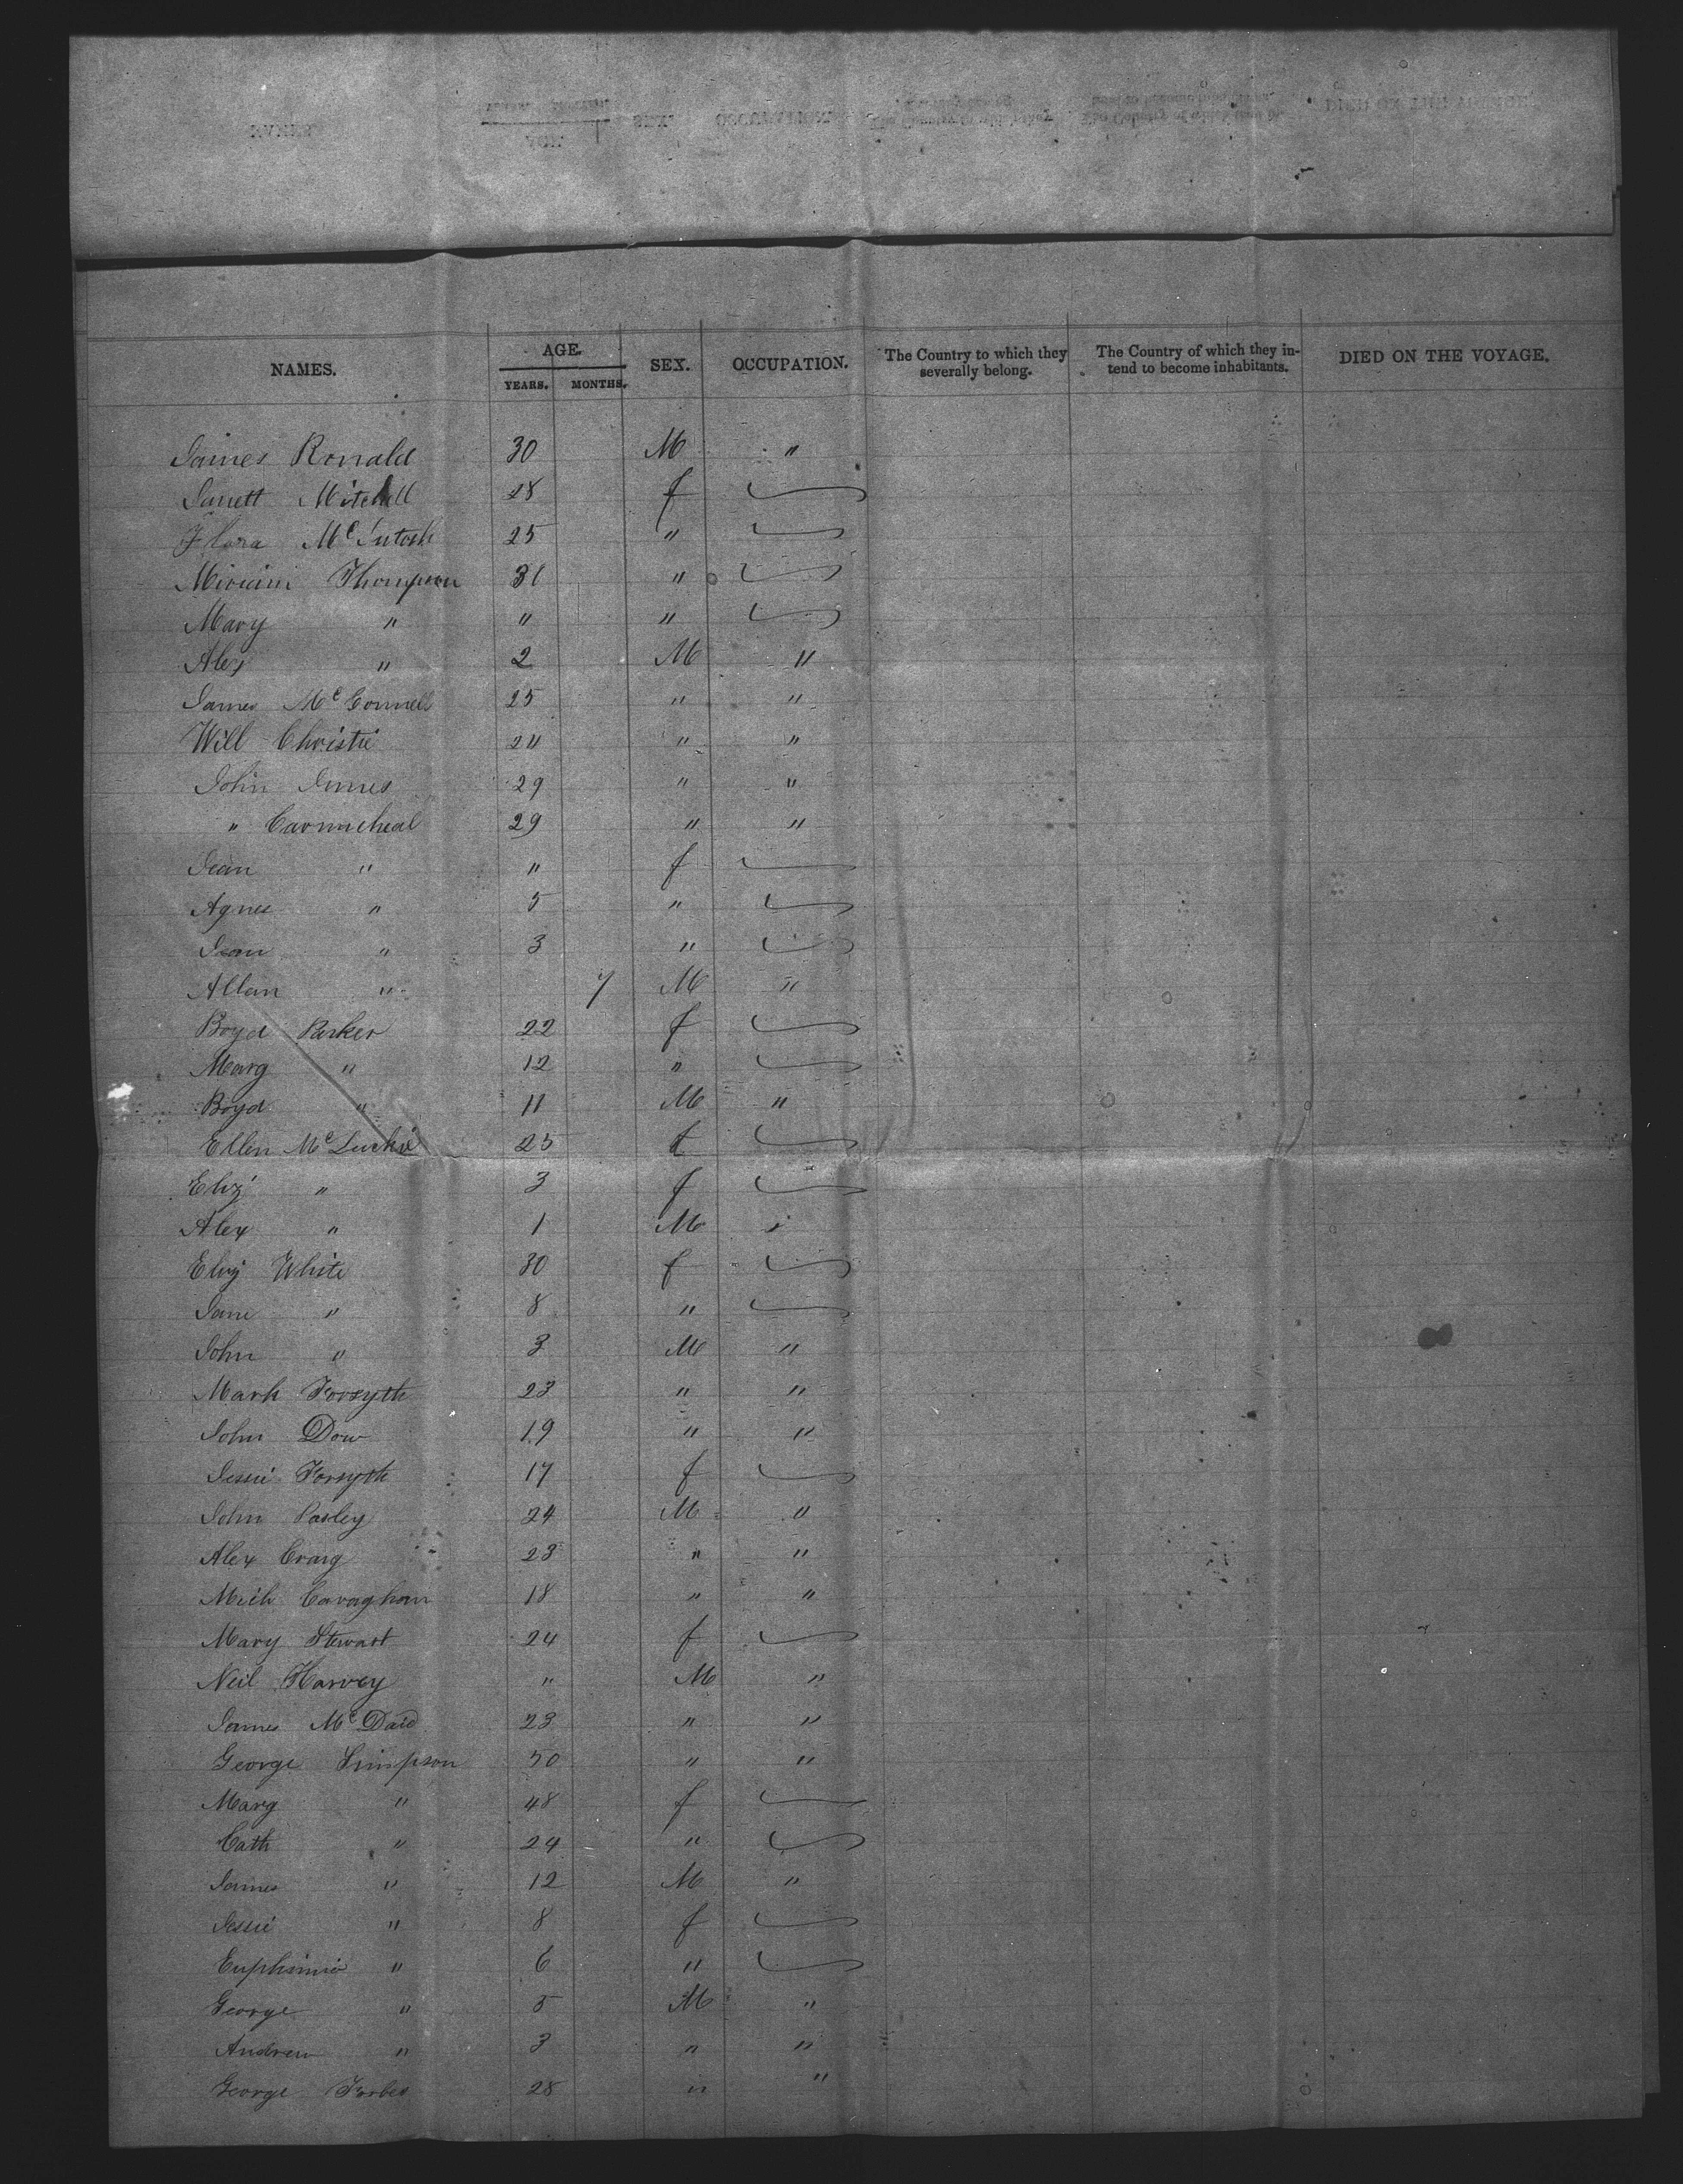 NAMES. AGE. YEARS. MONTHS. SEX. OCCUPATION. The Country to which they severally belong. The Country of which they intend to become inhabitants. DIED ON THE VOYAGE.
James Ronald 30 M "
Janett Mitchell 28 f
Flora McIntosh 25 "
Miriam Thompson 31 "
Mary " " "
Alex " 2 M "
James McConnell 25 " "
Will Christie 24 " "
John Innes 29 " "
" Carmicheal 29 " "
Jean " " f
Agnes " 5 "
Jean " 3 "
Allan " 7 M "
Boyd Parker 22 f
Marg " 12 "
Boyd " 11 M "
Ellen McLuckie 25 f
Eliz " 3 f
Alex " 1 M "
Eliz White 30 f
Jane " 8 "
John " 3 M "
Mark Forsyth 23 " "
John Dow 19 " "
Jessie Forsyth 17 f
John Pasley 24 M "
Alex Craig 23 " "
Mich Cavaghan 18 " "
Mary Stewart 24 f
Neil Harvey " M "
James McDaid 23 " "
George Simpson 50 " "
Marg " 48 f
Cath " 24 "
James " 12 M "
Jessie " 8 f
Euphimia " 6 "
George " 5 M "
Andrew " 3 " "
George Forbes 28 " "